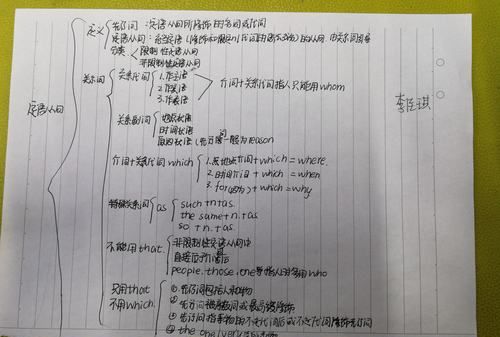 定义 先行词：定语从句所修饰的名词或代词
定语从句：在主句中(修饰和限定)代词或名词的从句，由关系词引导
分类 限制性定语从句
非限制性定语从句
定语从句
关系词 关系代词 1.作主语
2.作宾语
3.作表语
介词+关系代词指人只能用whom
李臣琪
关系副词 地点状语
时间状语
原因状语(先行词一般为reason
介词+关系代词which 1.表地点介词+which=where.
2.时间介词+which=when
3.for(因为)+which=why
特殊关系词 as such+n+as.
the same+n.+as
so +n.+as
不能用that. 非限制性定语从句中
直接位于介词后
people.those.one等指人时多用who
只用that
不用which. ①.先行词包括人和物
② 先行词被序数词或最高级修饰
③先行词指事物的不定代词后或不定代词修饰先行词
④ the only/very